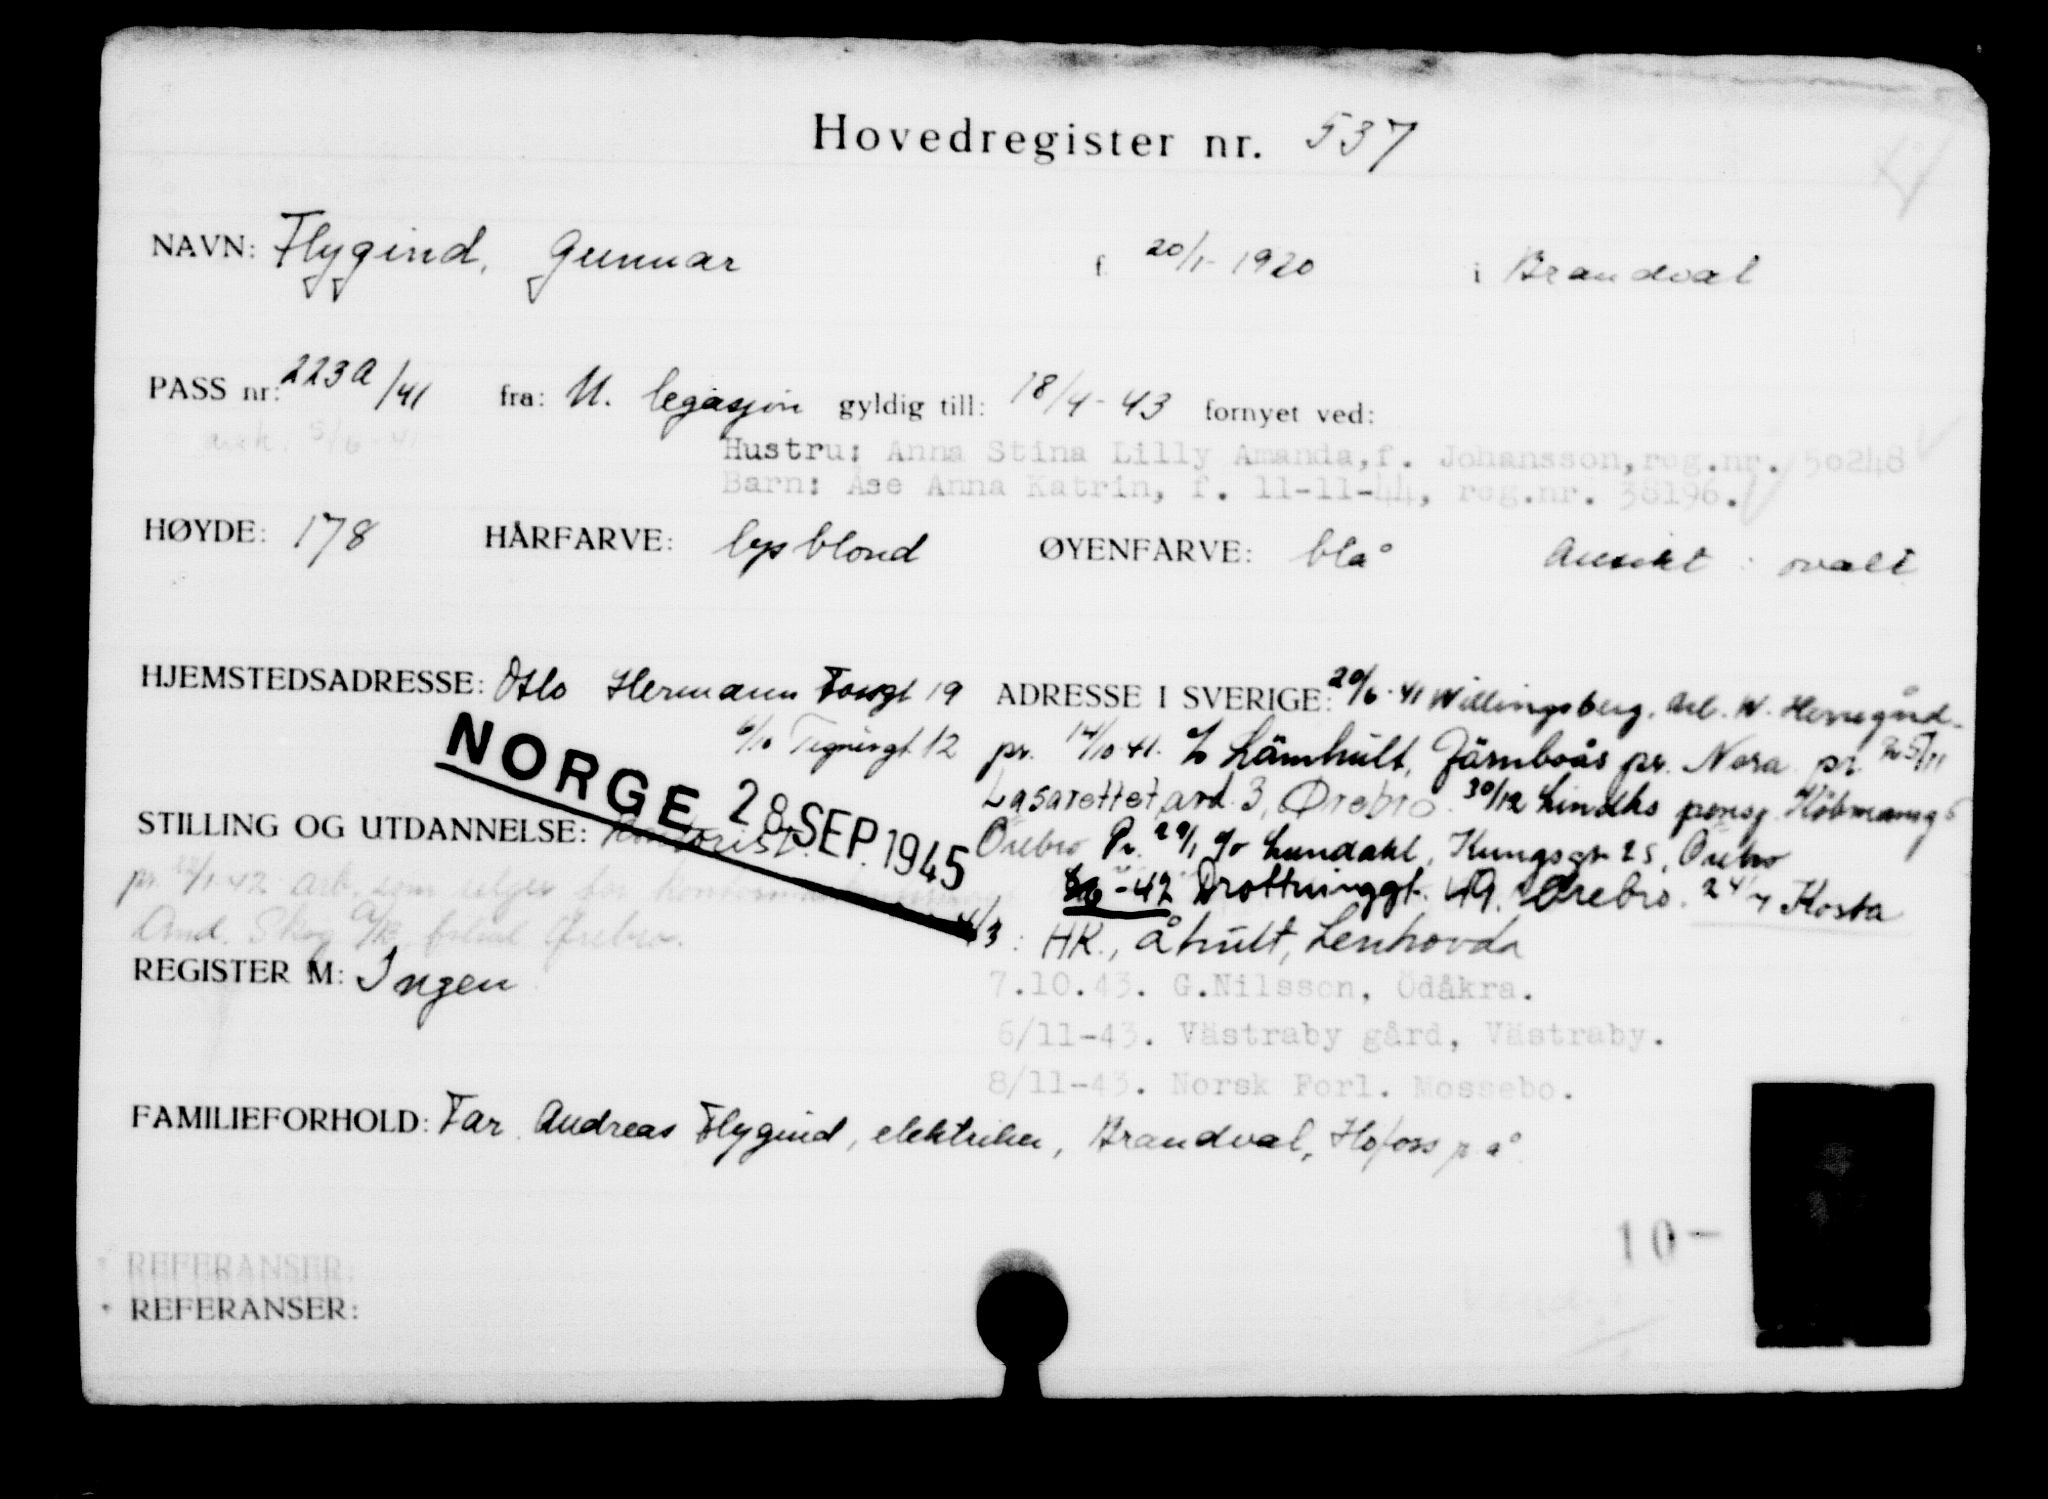 Hovedregister nr. 537
NAVN: Flygind, Gunnar f. 20/1-1920 i Brandval
PASS nr: 223A/41 fra: N. legasjon gyldig till: 18/4-43 fornyet ved:
5/6-41
Hustru: Anna Stina Lilly Amanda, f. Johansson, reg.nr. 50248
Barn: Åse Anna Katrin, f. 11-11-44, reg.nr. 38196.
HØYDE: 178 HÅRFARVE: lysblond ØYENFARVE: blå Ansikt: ovalt
HJEMSTEDSADRESSE: Oslo Hermann Fossgt 19 ADRESSE I SVERIGE: 20/6-41 Willingsberg. W. Herregård
6/10 Tegnérgt. 12 pr. 14/10 41. c/o Lämhult, Järnboås pr. Nora pr. 25/11
NORGE 28 SEP. 1945
Lasarettet avd. 3, Ørebro. 30/12 Lindhs pensj. Köbmansg 5
STILLING OG UTDANNELSE: Kontorist. Örebro Pr. 29/1 c/o Lundahl, Kungsgt. 25, Örebro
pr. 12/1 42 arb. som selger for
-42 Drottninggt. 49. Ørebro. 24/7 Kosta
And. Skog A/B, filial Örebro. 4/3: HR., Åhult, Lenhovda
REGISTER M: Ingen
7.10.43. G.Nilsson, Ödåkra.
6/11-43. Västraby gård, Västraby.
8/11-43. Norsk Forl. Mossebo.
FAMILIEFORHOLD: Far Andreas Flygind, elektriker, Brandval, Hofoss p.å.
10-
REFERANSER:
REFERANSER: